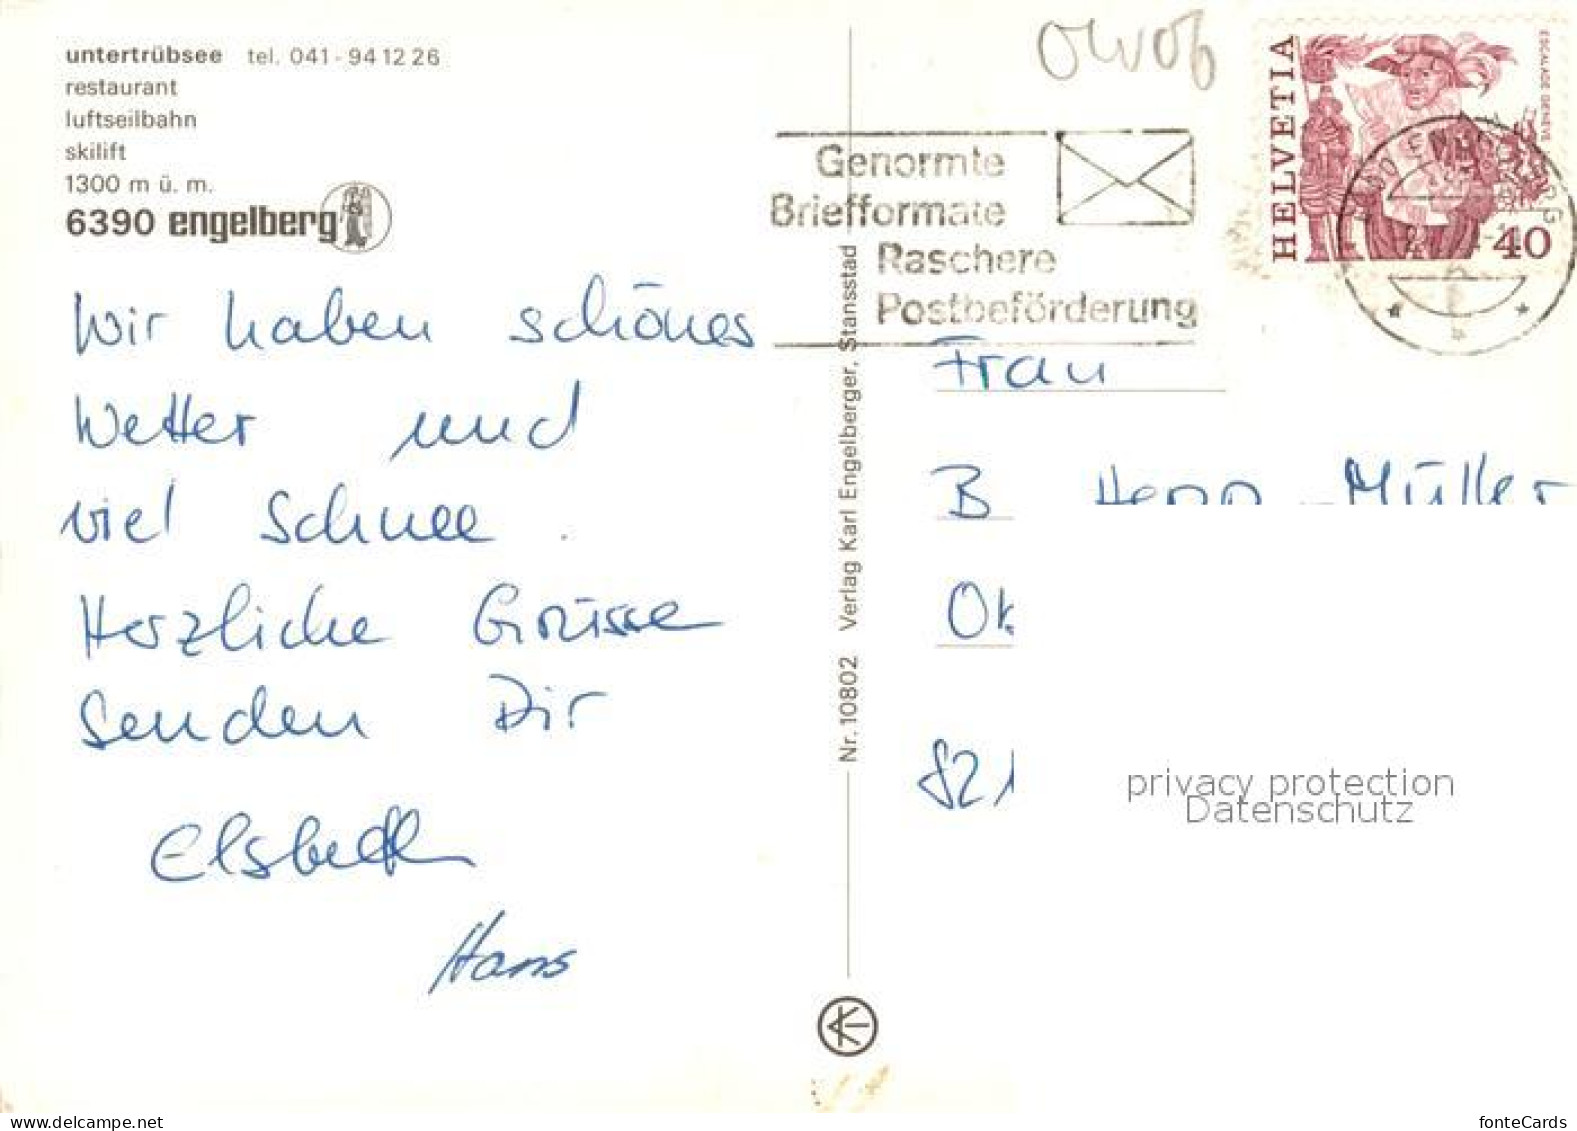 untertrübsee tel. 041-94 12 26
restaurant
luftseilbahn
skilift
1300 m ü. m.
6390 engelberg
Wir haben schönes
Wetter und
viel Schnee.
Herzliche Grüsse
Senden Dir
Elsbeth
Hans
Nr. 10802 Verlag Karl Engelberger, Stansstad
Genormte
Briefformate
Raschere
Postbeförderung
HELVETIA
ESCALADE GENÈVE
40
Frau
B Müller
821
privacy protection
Datenschutz
fonteCards